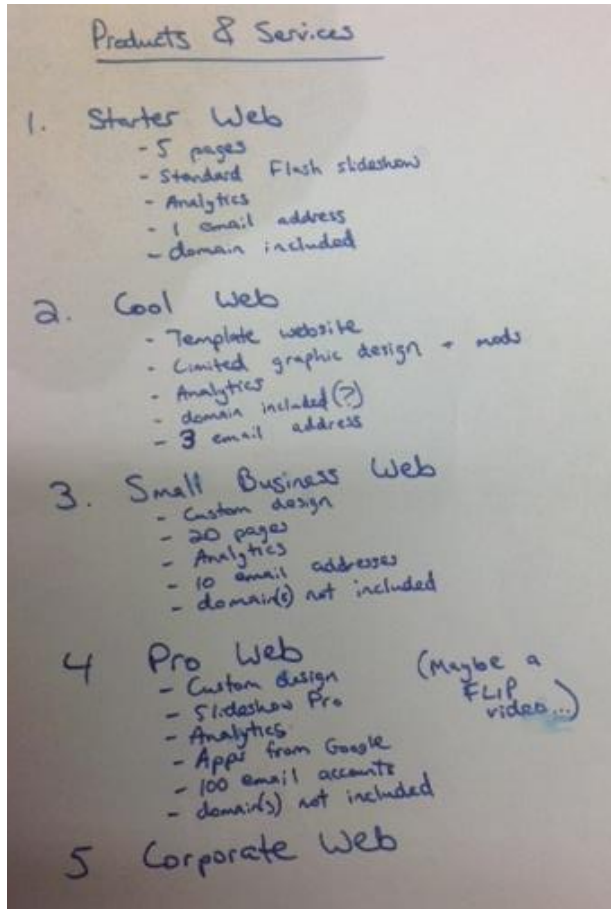 Products & Services
1. Starter Web
- 5 pages
- Standard Flash slideshow
- Analytics
- 1 email address
- domain included
2. Cool Web
- Template website
- Limited graphic design + mods
- Analytics
- domain included (?)
- 3 email address
3. Small Business Web
- Custom design
- 20 pages
- Analytics
- 10 email addresses
- domain(s) not included
4 Pro Web
- Custom design
- Slideshow Pro
- Analytics
- Apps from Google
- 100 email accounts
- domain(s) not included
(Maybe a
FLIP
video...)
5 Corporate Web